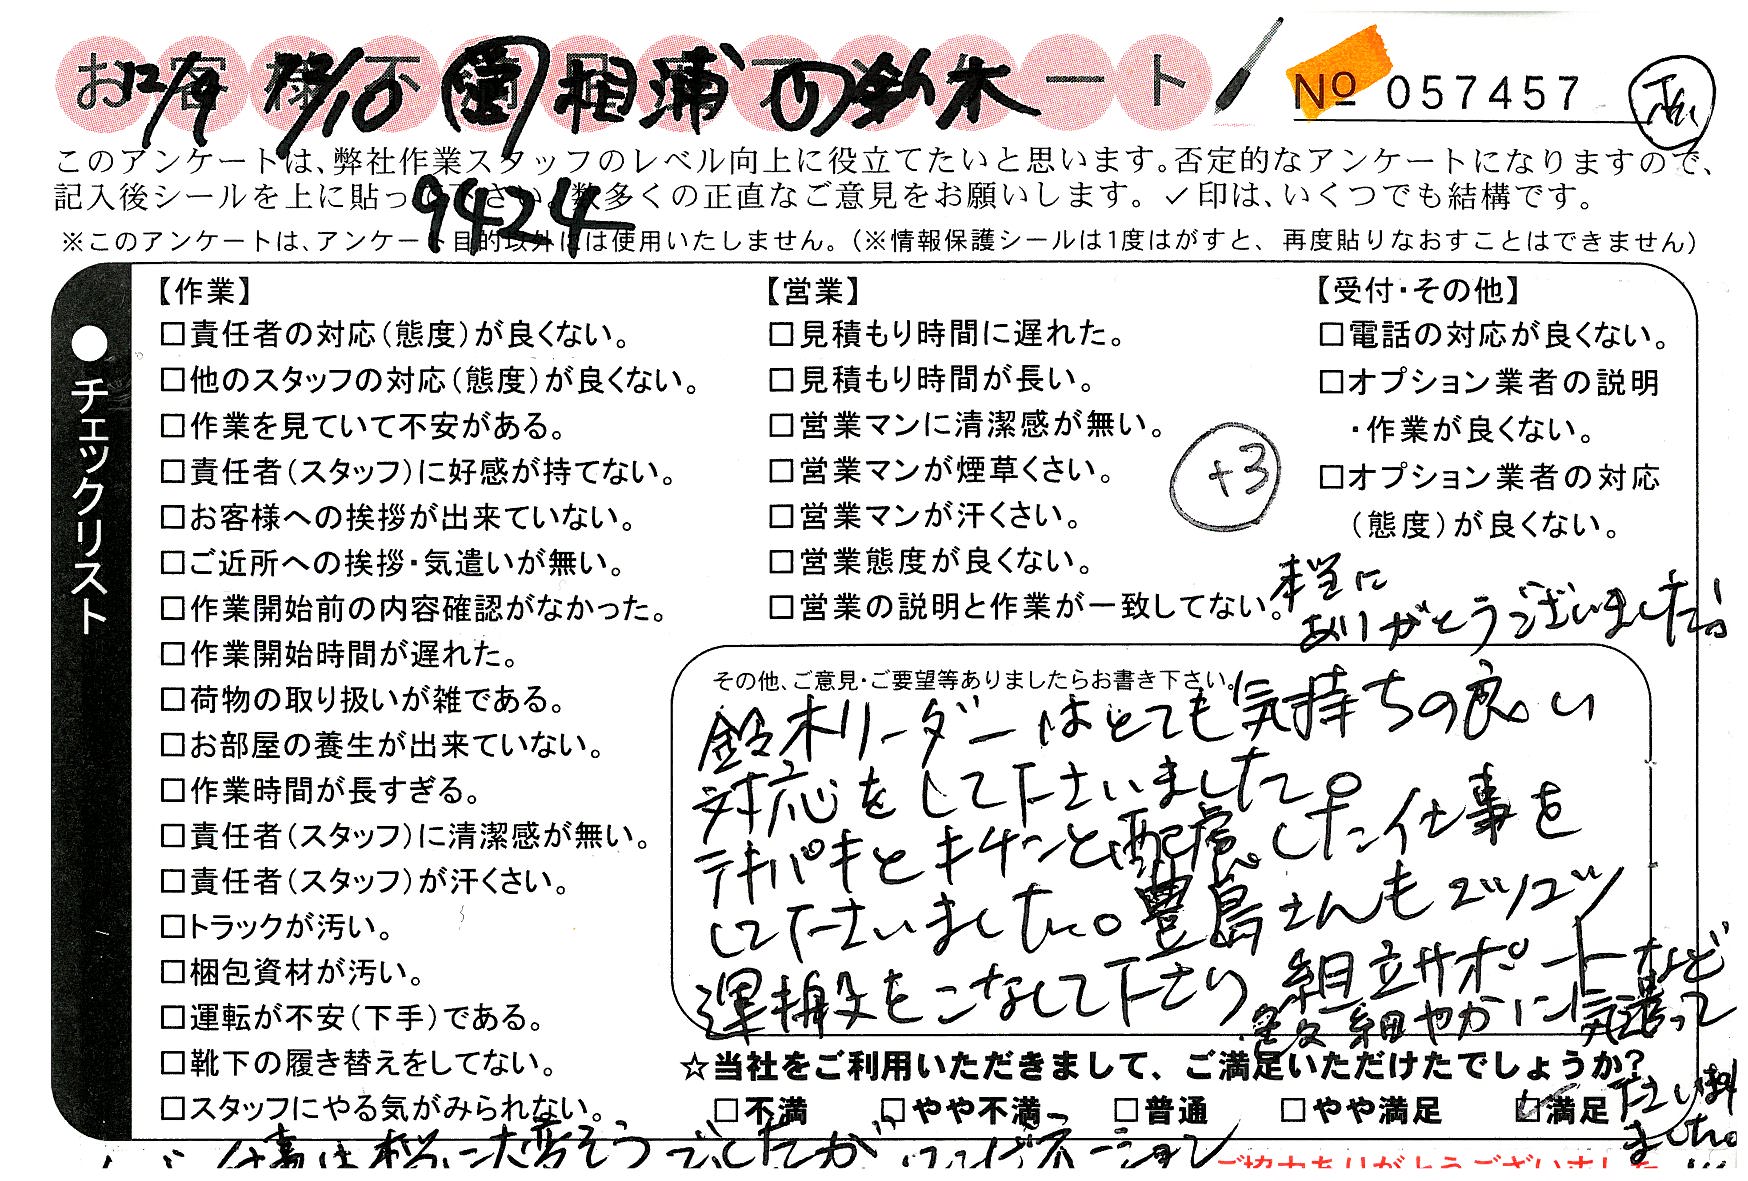 お客様不満足アンケート
12/9 12/10 相浦 の鈴木
No 057457
このアンケートは、弊社作業スタッフのレベル向上に役立てたいと思います。否定的なアンケートになりますので、
記入後シールを上に貼っ 数多くの正直なご意見をお願いします。✓印は、いくつでも結構です。
9424
※このアンケートは、アンケート目的以外には使用いたしません。(※情報保護シールは1度はがすと、再度貼りなおすことはできません)
●チェックリスト
【作業】
□責任者の対応(態度)が良くない。
□他のスタッフの対応(態度)が良くない。
□作業を見ていて不安がある。
□責任者(スタッフ)に好感が持てない。
□お客様への挨拶が出来ていない。
□ご近所への挨拶・気遣いが無い。
□作業開始前の内容確認がなかった。
□作業開始時間が遅れた。
□荷物の取り扱いが雑である。
□お部屋の養生が出来ていない。
□作業時間が長すぎる。
□責任者(スタッフ)に清潔感が無い。
□責任者(スタッフ)が汗くさい。
□トラックが汚い。
□梱包資材が汚い。
□運転が不安(下手)である。
□靴下の履き替えをしてない。
□スタッフにやる気がみられない。
【営業】
□見積もり時間に遅れた。
□見積もり時間が長い。
□営業マンに清潔感が無い。
□営業マンが煙草くさい。
□営業マンが汗くさい。
□営業態度が良くない。
□営業の説明と作業が一致してない。
+3
【受付・その他】
□電話の対応が良くない。
□オプション業者の説明
・作業が良くない。
□オプション業者の対応
(態度)が良くない。
本当に
ありがとうございました!
その他、ご意見・ご要望等ありましたらお書き下さい。
鈴木リーダーはとても気持ちの良い
対応をして下さいました。
テキパキとキチンと配慮した仕事を
して下さいました。豊島さんもコツコツ
運搬をこなして下さり 組立サポートなど
細やかに気遣って
下さい
ました。
☆当社をご利用いただきまして、ご満足いただけたでしょうか?
□不満 □やや不満 □普通 □やや満足 ☑満足
仕事は本当に大変そうでしたが コンビネーション
ご協力ありがとうございました